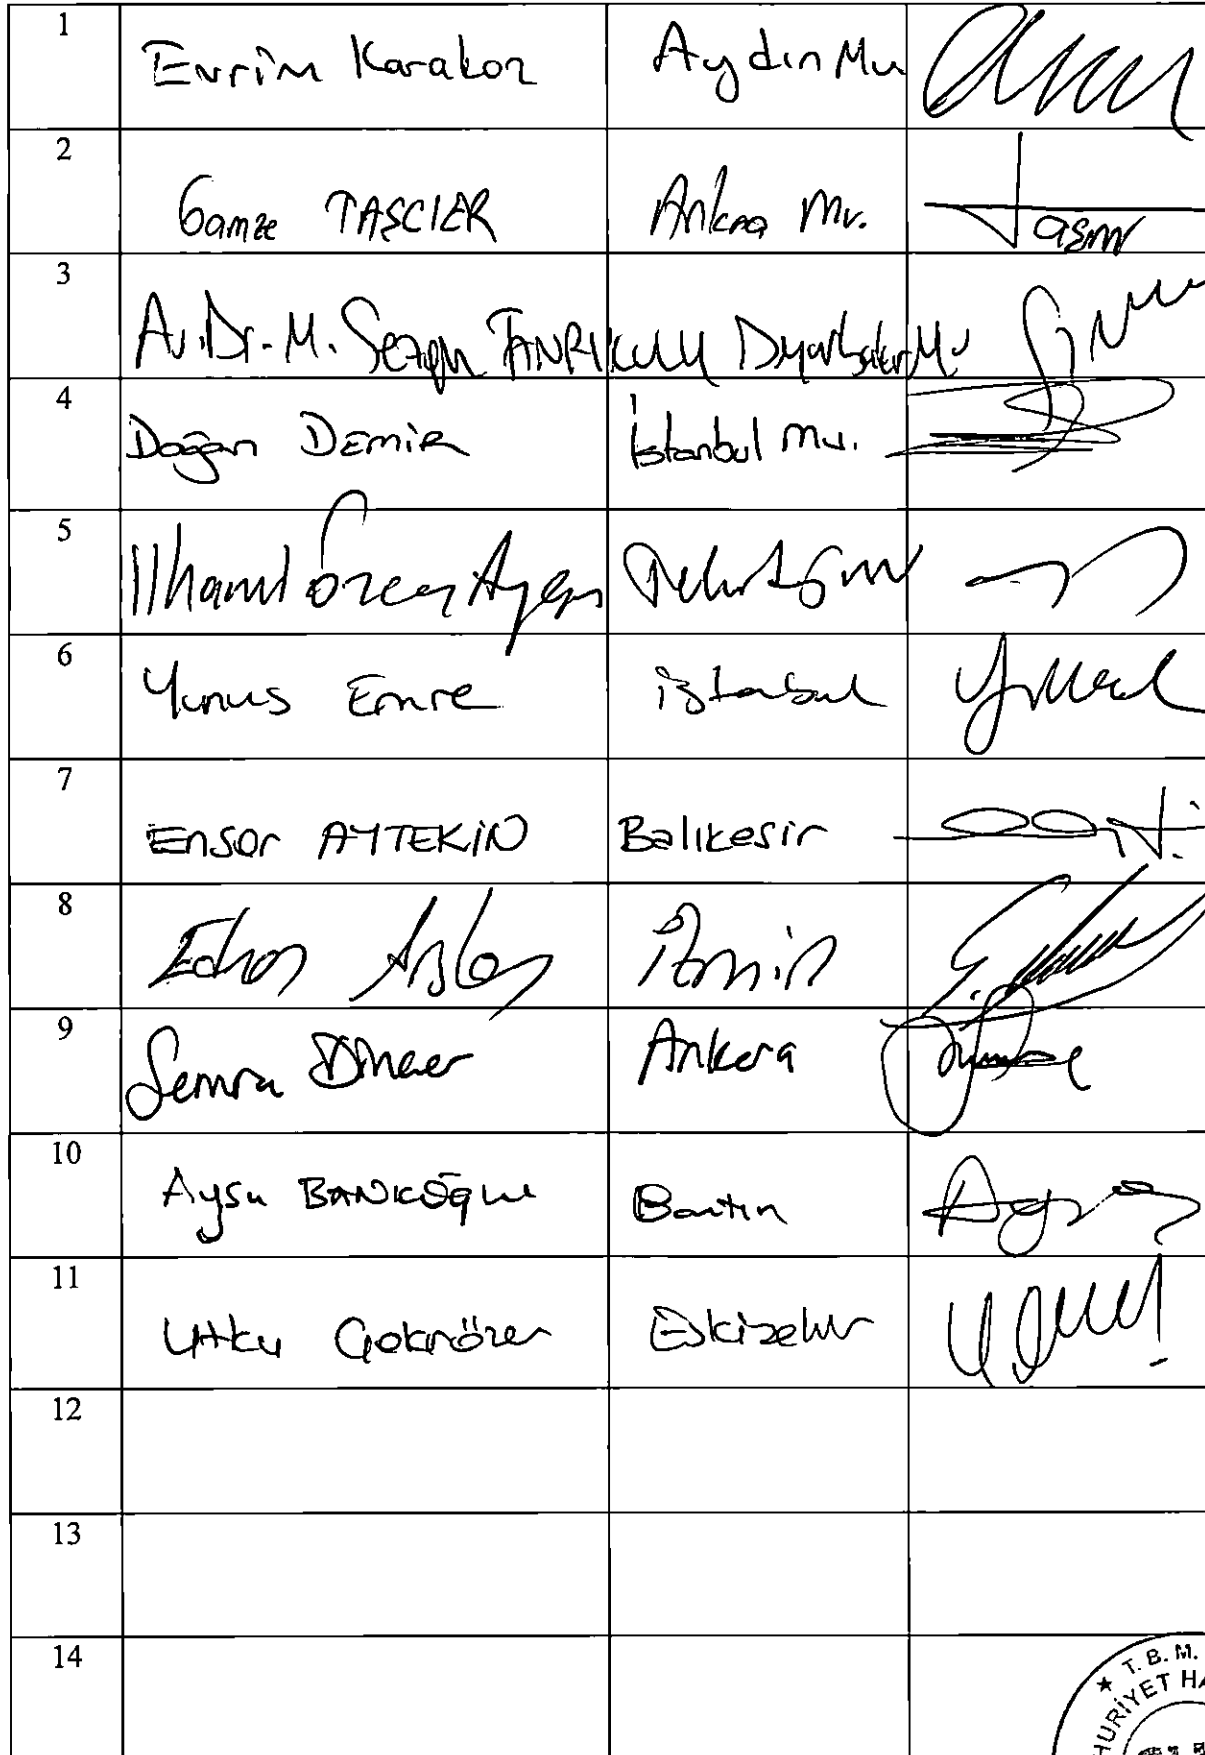 1 Evrim Karakoz Aydın Mv
2 Gamze TAŞCIER Ankara Mv.
3 Av. Dr. M. Sezgin TANRIKULU Diyarbakır Mv
4 Doğan DEMİR İstanbul Mv.
5 İlhami Özcan Aygun Tekirdağ mv
6 Yunus Emre istanbul
7 Ensar AYTEKİN Balıkesir
8 Ednan Arslan İzmir
9 Semra Dinçer Ankara
10 Aysu BANKOĞLU Bartın
11 Utku Çakırözer Eskişehir
12
13
14
★ T. B. M.
HURİYET HA